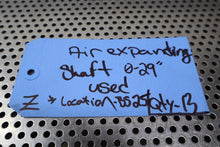 Air expanding
shaft 0-29"
used
Z * Location-BS25/Qty-B